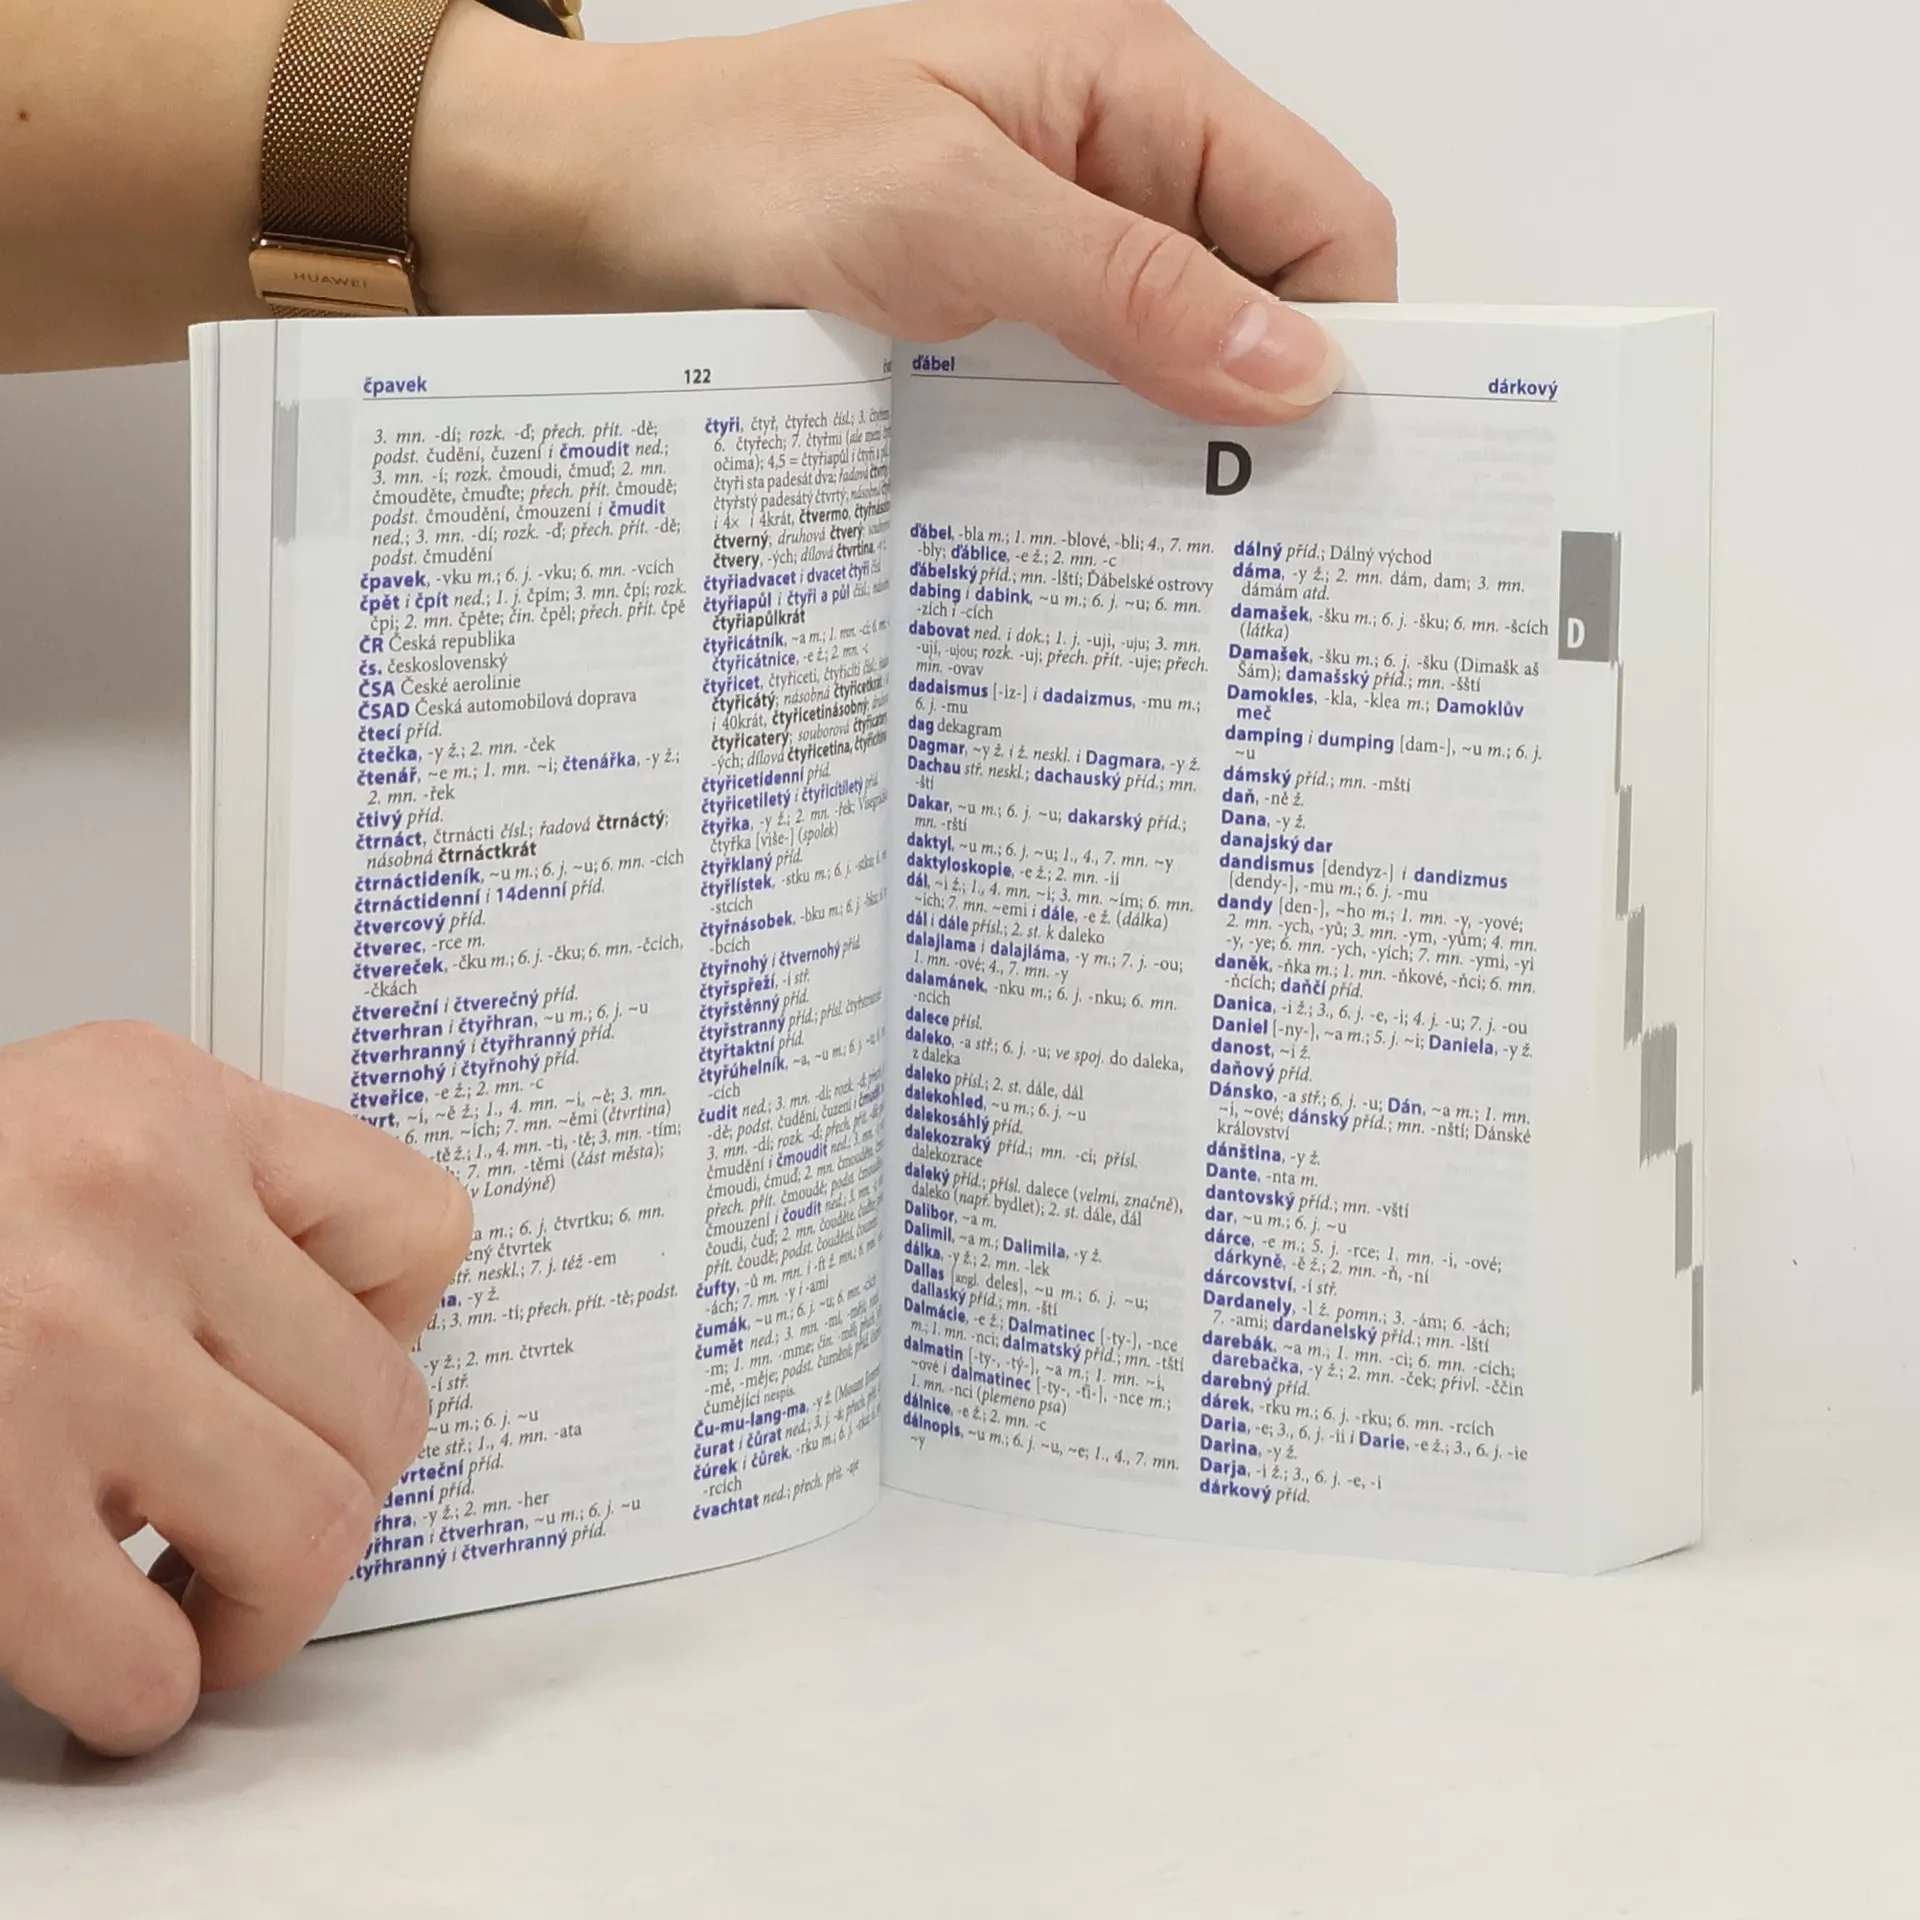 HUAWEI
čpavek
122
3. mn. -dí; rozk. -ď; přech. přít. -dě;
podst. čudění, čuzení i čmoudit ned.;
3. mn. -í; rozk. čmoudi, čmuď; 2. mn.
čmouděte, čmuďte; přech. přít. čmoudě;
podst. čmoudění, čmouzení i čmudit
ned.; 3. mn. -dí; rozk. -ď; přech. přít. -dě;
podst. čmudění
čpavek, -vku m.; 6. j. -vku; 6. mn. -vcích
čpět i čpít ned.; 1. j. čpím; 3. mn. čpí; rozk.
čpi; 2. mn. čpěte; čin. čpěl; přech. přít. čpě
ČR Česká republika
čs. československý
ČSA České aerolinie
ČSAD Česká automobilová doprava
čtecí příd.
čtečka, -y ž.; 2. mn. -ček
čtenář, ~e m.; 1. mn. ~i; čtenářka, -y ž.;
2. mn. -řek
čtivý příd.
čtrnáct, čtrnácti čísl.; řadová čtrnáctý;
násobná čtrnáctkrát
čtrnáctideník, ~u m.; 6. j. ~u; 6. mn. -cích
čtrnáctidenní i 14denní příd.
čtvercový příd.
čtverec, -rce m.
čtvereček, -čku m.; 6. j. -čku; 6. mn. -čcích,
-čkách
čtvereční i čtverečný příd.
čtverhran i čtyřhran, ~u m.; 6. j. ~u
čtverhranný i čtyřhranný příd.
čtvernohý i čtyřnohý příd.
čtveřice, -e ž.; 2. mn. -c
tvrt, ~i, ~ě ž.; 1., 4. mn. ~i, ~ě; 3. mn.
6. mn. ~ích; 7. mn. ~ěmi (čtvrtina)
-tě ž.; 1., 4. mn. -ti, -tě; 3. mn. -tím;
7. mn. -těmi (část města);
v Londýně)
a m.; 6. j. čtvrtku; 6. mn.
ený čtvrtek
stř. neskl.; 7. j. též -em
na, -y ž.
d.; 3. mn. -tí; přech. přít. -tě; podst.
-y ž.; 2. mn. čtvrtek
-í stř.
příd.
~u m.; 6. j. ~u
ete stř.; 1., 4. mn. -ata
vrteční příd.
denní příd.
řhra, -y ž.; 2. mn. -her
yřhran i čtverhran, ~u m.; 6. j. ~u
tyřhranný i čtverhranný příd.
čtyři, čtyř, čtyřech čísl.; 3. čtyřem
6. čtyřech; 7. čtyřmi (ale mezi
očima); 4,5 = čtyřiapůl i čtyři a půl
čtyři sta padesát dva; řadová čtvrtý
čtyřstý padesátý čtvrtý; násobná
i 4× i 4krát, čtvermo, čtyřnásob
čtverný; druhová čtverý; soubor
čtvery, -ých; dílová čtvrtina,
čtyřiadvacet i dvacet čtyři čísl.
čtyřiapůl i čtyři a půl čísl.; násob
čtyřiapůlkrát
čtyřicátník, ~a m.; 1. mn. -ci; 6. m
čtyřicátnice, -e ž.; 2. mn. -c
čtyřicet, čtyřiceti, čtyřicíti čísl.; řadov
čtyřicátý; násobná čtyřicetkrát
i 40krát, čtyřicetinásobný; druhov
čtyřicaterý; souborová čtyřicatery
-ých; dílová čtyřicetina, čtyřicítina
čtyřicetidenní příd.
čtyřicetiletý i čtyřicítiletý příd.
čtyřka, -y ž.; 2. mn. -řek; Visegrádská
čtyřka [više-] (spolek)
čtyřklaný příd.
čtyřlístek, -stku m.; 6. j. -stku; 6. m
-stcích
čtyřnásobek, -bku m.; 6. j. -bku;
-bcích
čtyřnohý i čtvernohý příd.
čtyřspřeží, -í stř.
čtyřstěnný příd.
čtyřstranný příd.; přísl. čtyřstranně
čtyřtaktní příd.
čtyřúhelník, ~a, ~u m.; 6. j. ~u,
-cích
čudit ned.; 3. mn. -dí; rozk. -ď; přech. přít.
-dě; podst. čudění, čuzení i čmoudit
3. mn. -dí; rozk. -ď; přech. přít. -dě;
čmudění i čmoudit ned.; 3. mn. -í
čmoudi, čmuď; 2. mn. čmouděte,
přech. přít. čmoudě; podst. čmoudění,
čmouzení i čoudit ned.; 3. mn. -í;
čoudi, čuď; 2. mn. čouděte, čuďte
přít. čoudě; podst. čoudění, čouzení
čufty, -ů m. mn. i -ft ž. mn.; 6. mn.
-ách; 7. mn. -y i -ami
čumák, ~u m.; 6. j. ~u; 6. mn. -cích
čumět ned.; 3. mn. -mí, -mějí; rozk.
-m; 1. mn. -mme; čin. -měl; přech. přít.
-mě, -měje; podst. čumění; příd.
čumějící nespis.
Ču-mu-lang-ma, -y ž. (Mount Everest)
čurat i čůrat ned.; 3. j. -á; přech. přít.
čúrek i čůrek, -rku m.; 6. j. -rku;
-rcích
čvachtat ned.; přech. přít. -aje
ďábel
dárkový
D
ďábel, -bla m.; 1. mn. -blové, -bli; 4., 7. mn.
-bly; ďáblice, -e ž.; 2. mn. -c
ďábelský příd.; mn. -lští; Ďábelské ostrovy
dabing i dabink, ~u m.; 6. j. ~u; 6. mn.
-zích i -cích
dabovat ned. i dok.; 1. j. -uji, -uju; 3. mn.
-ují, -ujou; rozk. -uj; přech. přít. -uje; přech.
min. -ovav
dadaismus [-iz-] i dadaizmus, -mu m.;
6. j. -mu
dag dekagram
Dagmar, ~y ž. i ž. neskl. i Dagmara, -y ž.
Dachau stř. neskl.; dachauský příd.; mn.
-ští
Dakar, ~u m.; 6. j. ~u; dakarský příd.;
mn. -rští
daktyl, ~u m.; 6. j. ~u; 1., 4., 7. mn. ~y
daktyloskopie, -e ž.; 2. mn. -ií
dál, ~i ž.; 1., 4. mn. ~i; 3. mn. ~ím; 6. mn.
~ích; 7. mn. ~emi i dále, -e ž. (dálka)
dál i dále přísl.; 2. st. k daleko
dalajlama i dalajláma, -y m.; 7. j. -ou;
1. mn. -ové; 4., 7. mn. -y
dalamánek, -nku m.; 6. j. -nku; 6. mn.
-ncích
dalece přísl.
daleko, -a stř.; 6. j. -u; ve spoj. do daleka,
z daleka
daleko přísl.; 2. st. dále, dál
dalekohled, ~u m.; 6. j. ~u
dalekosáhlý příd.
dalekozraký příd.; mn. -cí; přísl.
dalekozrace
daleký příd.; přísl. dalece (velmi, značně),
daleko (např. bydlet); 2. st. dále, dál
Dalibor, ~a m.
Dalimil, ~a m.; Dalimila, -y ž.
dálka, -y ž.; 2. mn. -lek
Dallas [angl. deles], ~u m.; 6. j. ~u;
dallaský příd.; mn. -ští
Dalmácie, -e ž.; Dalmatinec [-ty-], -nce
m.; 1. mn. -nci; dalmatský příd.; mn. -tští
dalmatin [-ty-, -tý-], ~a m.; 1. mn. ~i,
~ové i dalmatinec [-ty-, -tí-], -nce m.;
1. mn. -nci (plemeno psa)
dálnice, -e ž.; 2. mn. -c
dálnopis, ~u m.; 6. j. ~u, ~e; 1., 4., 7. mn.
~y
dálný příd.; Dálný východ
dáma, -y ž.; 2. mn. dám, dam; 3. mn.
dámám atd.
damašek, -šku m.; 6. j. -šku; 6. mn. -šcích
(látka)
Damašek, -šku m.; 6. j. -šku (Dimašk aš
Šám); damašský příd.; mn. -šští
Damokles, -kla, -klea m.; Damoklův
meč
damping i dumping [dam-], ~u m.; 6. j.
~u
dámský příd.; mn. -mští
daň, -ně ž.
Dana, -y ž.
danajský dar
dandismus [dendyz-] i dandizmus
[dendy-], -mu m.; 6. j. -mu
dandy [den-], ~ho m.; 1. mn. -y, -yové;
2. mn. -ych, -yů; 3. mn. -ym, -yům; 4. mn.
-y, -ye; 6. mn. -ych, -yích; 7. mn. -ymi, -yi
daněk, -ňka m.; 1. mn. -ňkové, -ňci; 6. mn.
-ňcích; daňčí příd.
Danica, -i ž.; 3., 6. j. -e, -i; 4. j. -u; 7. j. -ou
Daniel [-ny-], ~a m.; 5. j. ~i; Daniela, -y ž.
danost, ~i ž.
daňový příd.
Dánsko, -a stř.; 6. j. -u; Dán, ~a m.; 1. mn.
~i, ~ové; dánský příd.; mn. -nští; Dánské
království
dánština, -y ž.
Dante, -nta m.
dantovský příd.; mn. -vští
dar, ~u m.; 6. j. ~u
dárce, -e m.; 5. j. -rce; 1. mn. -i, -ové;
dárkyně, -ě ž.; 2. mn. -ň, -ní
dárcovství, -í stř.
Dardanely, -l ž. pomn.; 3. -ám; 6. -ách;
7. -ami; dardanelský příd.; mn. -lští
darebák, ~a m.; 1. mn. -ci; 6. mn. -cích;
darebačka, -y ž.; 2. mn. -ček; přivl. -ččin
darebný příd.
dárek, -rku m.; 6. j. -rku; 6. mn. -rcích
Daria, -e; 3., 6. j. -ii i Darie, -e ž.; 3., 6. j. -ie
Darina, -y ž.
Darja, -i ž.; 3., 6. j. -e, -i
dárkový příd.
D